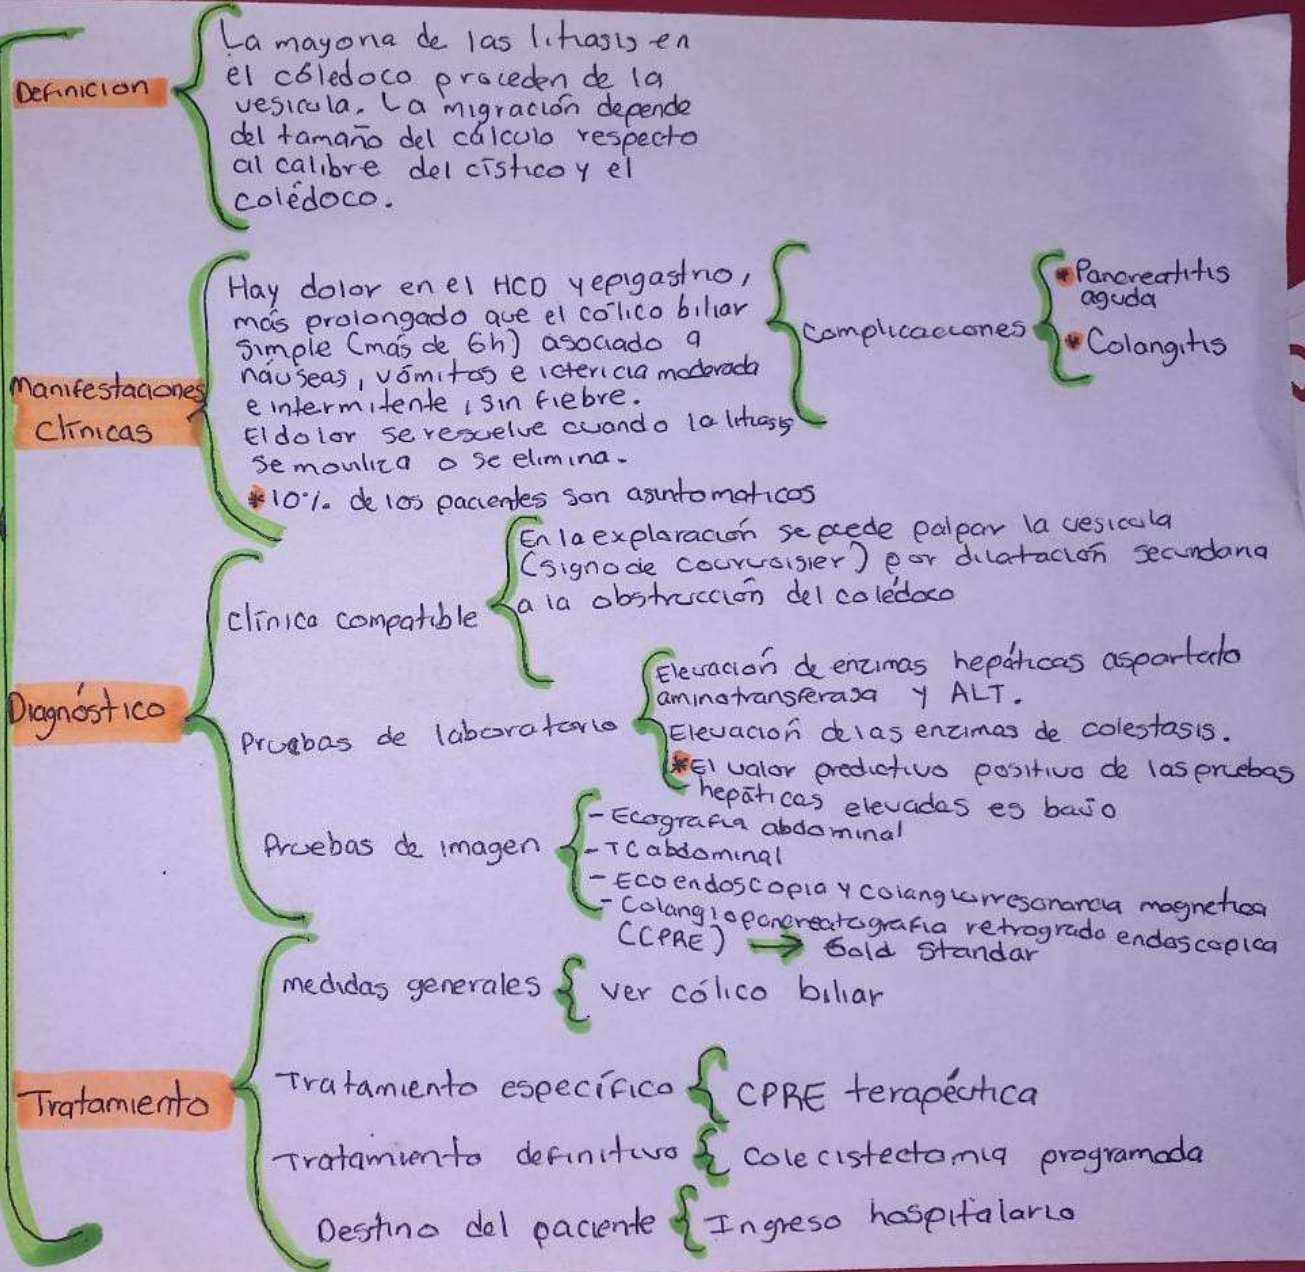 Definición
La mayoria de las litiasis en
el cóledoco proceden de la
vesicula. La migración depende
del tamaño del cálculo respecto
al calibre del cístico y el
colédoco.
Manifestaciones
Clínicas
Hay dolor en el HCD y epigastrio,
más prolongado que el cólico biliar
simple (más de 6h) asociado a
náuseas, vómitos e ictericia moderada
e intermitente, sin fiebre.
El dolor se resuelve cuando la litiasis
se moviliza o se elimina.
*10% de los pacientes son asintomaticos
complicaciones
*Pancreatitis
aguda
*Colangitis
Diagnóstico
clínica compatible
En la exploración se puede palpar la vesicula
(signo de courvoisier) por dilatación secundaria
a la obstrucción del colédoco
Pruebas de laboratorio
Elevación de enzimas hepáticas aspartato
aminotransferasa y ALT.
Elevación de las enzimas de colestasis.
*El valor predictivo positivo de las pruebas
hepáticas elevadas es bajo
Pruebas de imagen
- Ecografia abdominal
- TC abdominal
- Ecoendoscopia y colangiorresonancia magnetica
- Colangiopancreatografia retrograda endoscopica
(CPRE) → Gold Standar
Tratamiento
medidas generales
ver cólico biliar
Tratamiento específico
CPRE terapéutica
Tratamiento definitivo
colecistectomia programada
Destino del paciente
Ingreso hospitalario